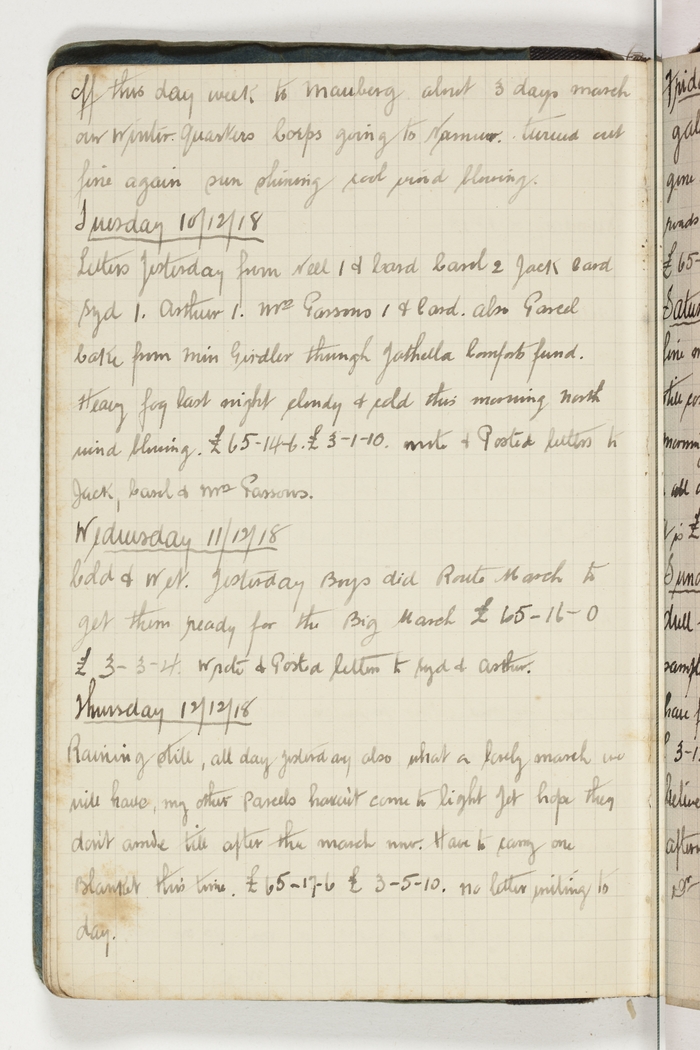 off this day week to Mauberg about 3 days march
our Winter Quarters Corps going to Namur. turned out
fine again sun shining cool wind blowing.
Tuesday 10/12/18
Letters Yesterday from Nell 1 & Card Carol 2 Jack Card
Syd 1. Arthur 1. Mrs Parsons 1 & Card. also Parcel
Cake from Min Girdler through Comforts fund.
Heavy fog last night cloudy & cold this morning north
wind blowing. £65-14-6. £3-1-10. wrote & Posted letters to
Jack, Carol & Mrs Parsons.
Wednesday 11/12/18
Cold & Wet. Yesterday Boys did Route March to
get them ready for the Big March £65-16-0
£3-3-4. Wrote & Posted letters to Syd & Arthur.
Thursday 12/12/18
Raining still, all day yesterday also what a lovely march we
will have, my other Parcels havent come to light Yet hope they
don't arrive till after the march now. Have to carry one
Blanket this time. £65-17-6 £3-5-10. no letter writing to
day.
Frid
gal
£65-
Satur
fine
Sund
dull
have
3-1
after